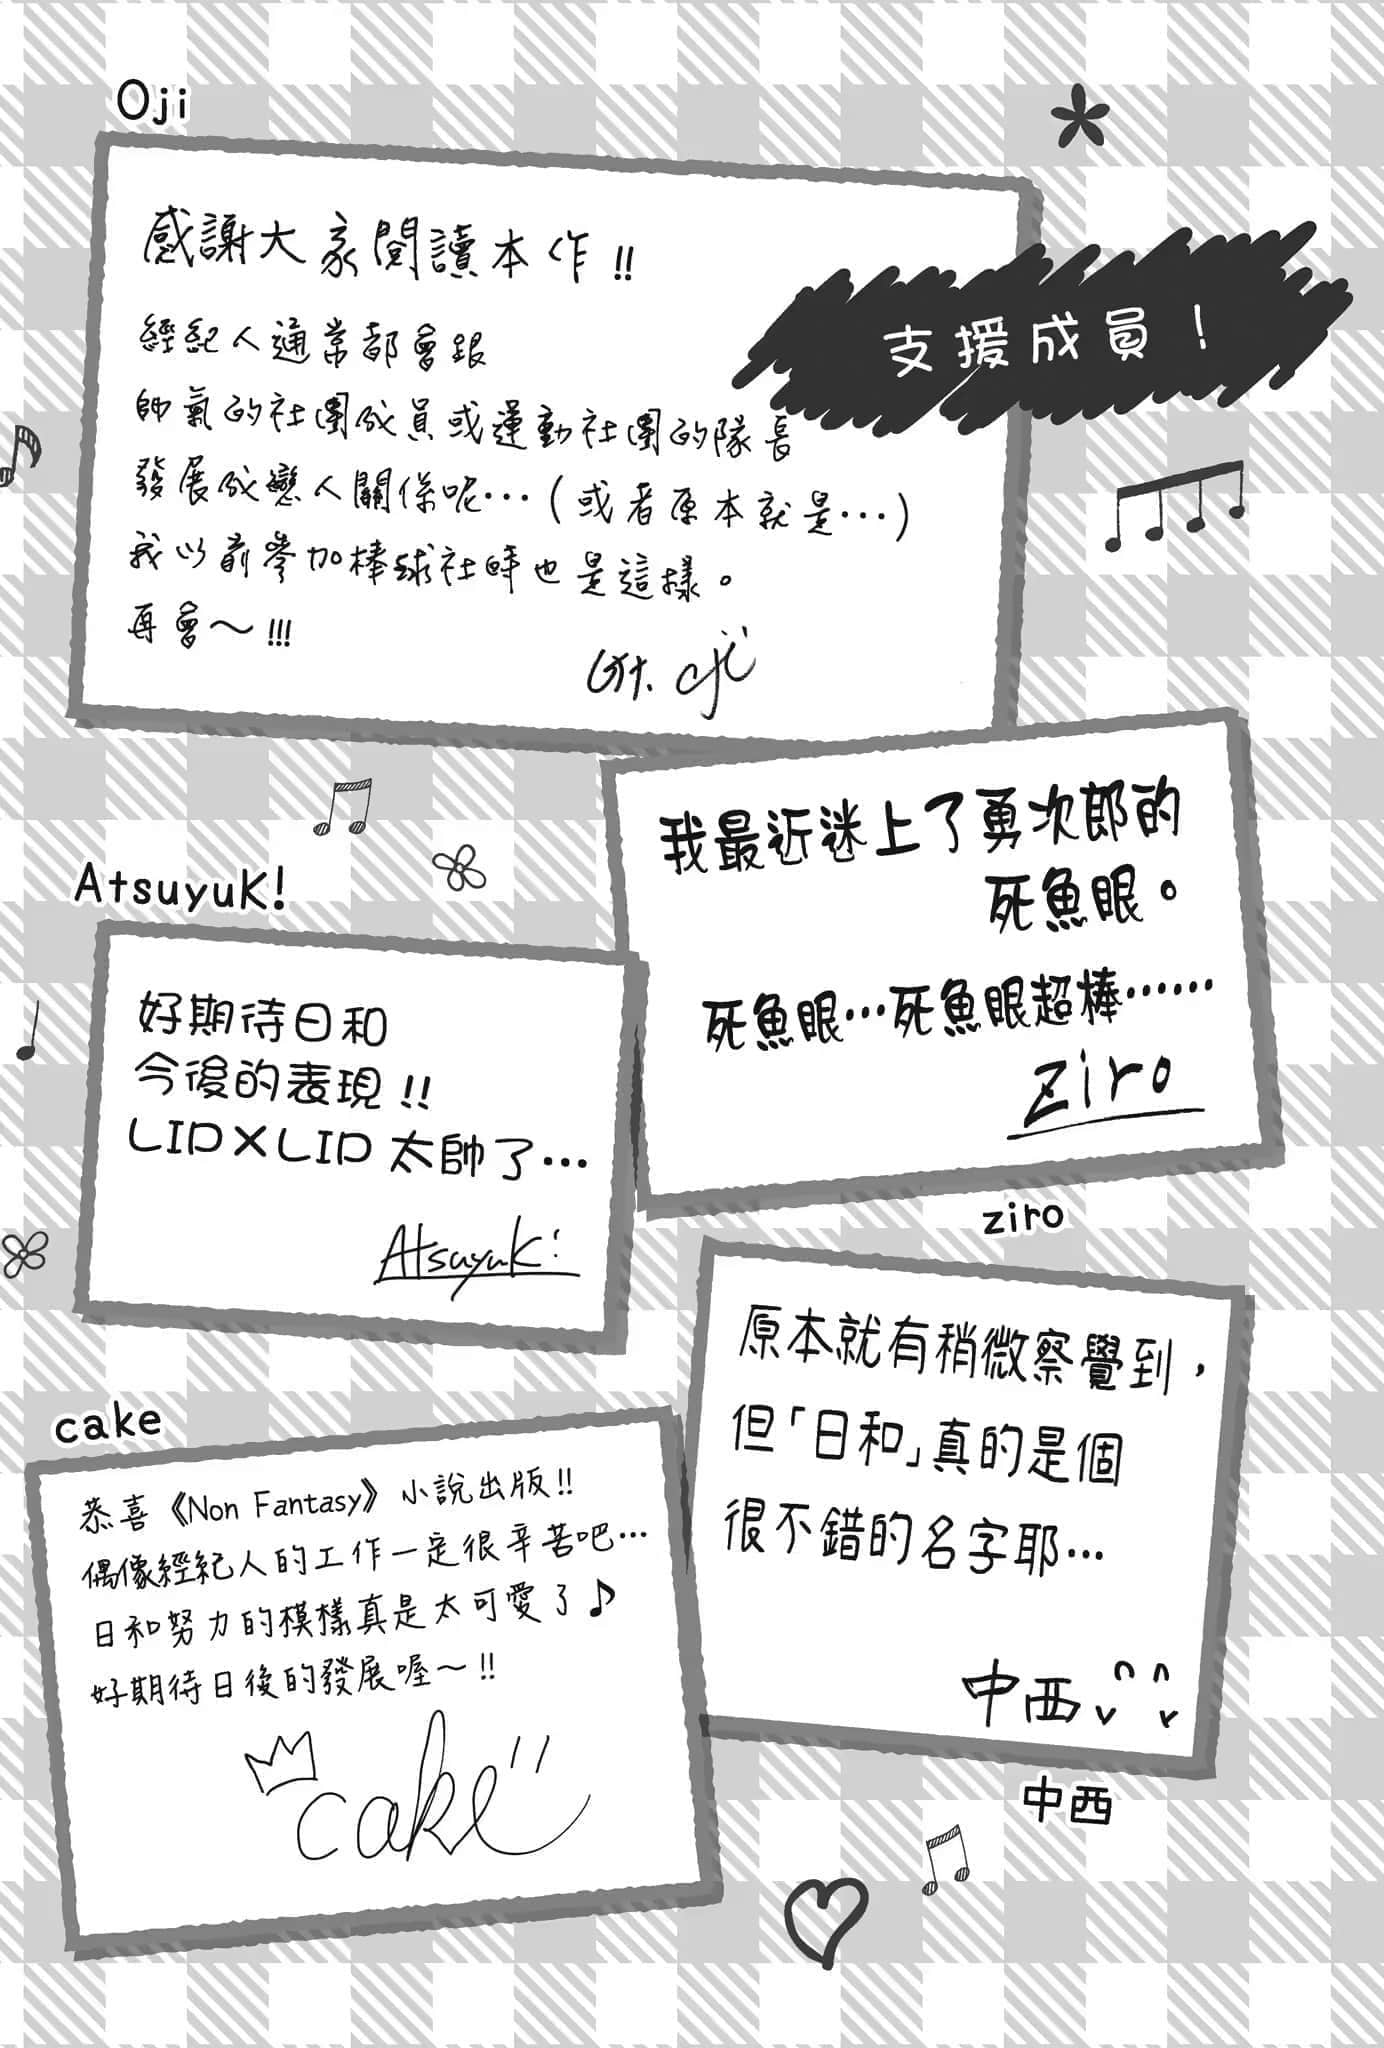 Oji
感謝大家閱讀本作!!
經紀人通常都會跟
帥氣的社團成員或運動社團的隊長
發展成戀人關係呢…(或者原本就是…)
我以前參加棒球社時也是這樣。
再會～!!!
Gt. oji
支援成員！
我最近迷上了勇次郎的
死魚眼。
死魚眼…死魚眼超棒……
ziro
ziro
AtsuyuK!
好期待日和
今後的表現!!
LIP×LIP 太帥了…
AtsuyuK!
原本就有稍微察覺到，
但「日和」真的是個
很不錯的名字耶…
中西
中西
cake
恭喜《Non Fantasy》小說出版!!
偶像經紀人的工作一定很辛苦吧…
日和努力的模樣真是太可愛了♪
好期待日後的發展喔～!!
cake